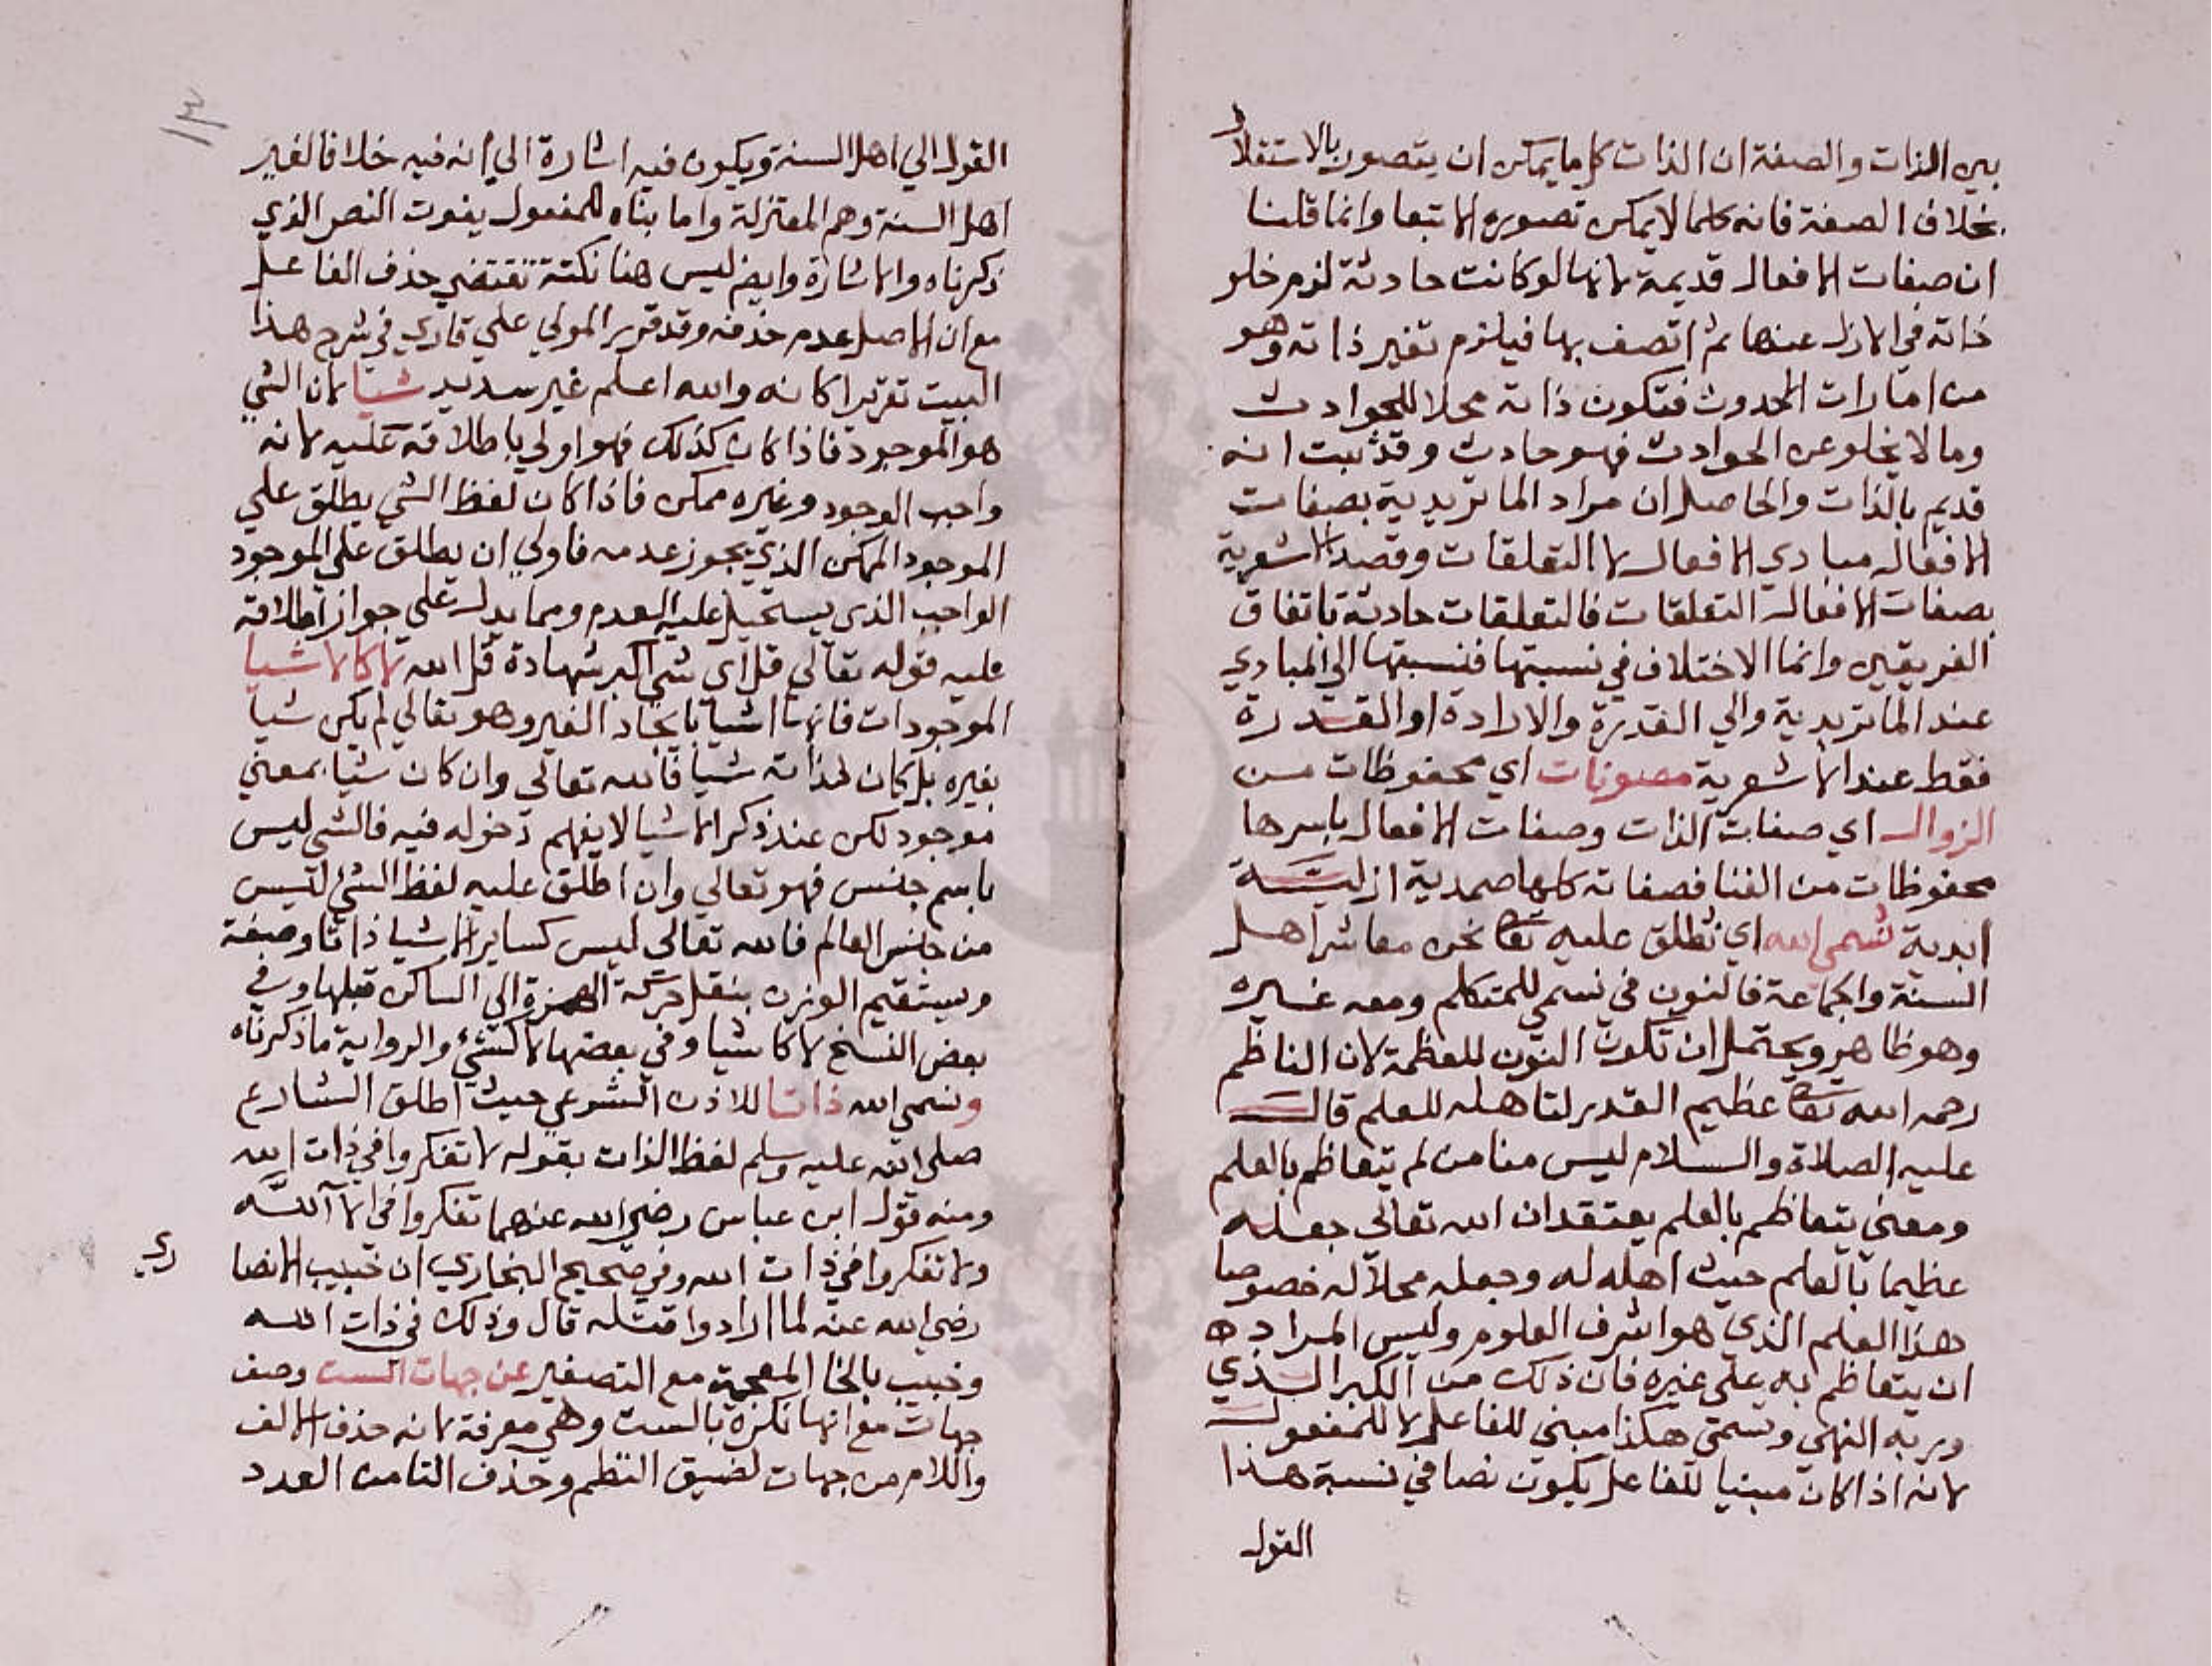 بين الذات والصفة ان الذات كل ما يمكن ان يتصور بالاستقلال
بخلاف الصفة فانه كلما لا يمكن تصوره الا تبعا وانما قلنا
ان صفات الافعال قديمة لانها لو كانت حادثة لزم خلو
ذاته في الازل عنها ثم اتصف بها فيلزم تغير ذاته وهو
من امارات الحدوث فتكون ذاته محلا للحوادث
وما لا يخلو عن الحوادث فهو حادث وقد ثبت انه
قديم بالذات والحاصل ان مراد الماتريدية بصفات
الافعال مبادي الافعال لا التعلقات وقصد الاشعرية
بصفات الافعال التعلقات فالتعلقات حادثة باتفاق
الفريقين وانما الاختلاف في نسبتها فنسبتها الي المبادي
عند الماتريدية والي القدرة والارادة او القدرة
فقط عند الاشعرية مصونات اي محفوظات من
الزوال اي صفات الذات وصفات الافعال باسرها
محفوظات من الفنا فصفاته كلها صمدية ازلية
ابدية نسمي الله اي نطلق عليه تعا نحن معاشر اهل
السنة والجماعة فالنون في نسمي للمتكلم ومعه غيره
وهو ظاهر ويحتمل ان تكون النون للعظمة لان الناظم
رحمه الله تعا عظيم القدر لتاهله للعلم قال
عليه الصلاة والسلام ليس منا من لم يتعاظم بالعلم
ومعني يتعاظم بالعلم يعتقد ان الله تعالي جعله
عظيما بالعلم حيث اهله له وجعله محلا له خصوصا
هذا العلم الذي هو اشرف العلوم وليس المراد به
ان يتعاظم به علي غيره فان ذلك من الكبر الذي
ورد به النهي ونسمي هكذا مبني للفاعل لا للمفعول
لانه اذا كان مبنيا للفاعل يكون نصا في نسبة هذا
القول
١٣
القول الي اهل السنة ويكون فيه اشارة الي انه فيه خلافا لغير
اهل السنة وهم المعتزلة واما بناه للمفعول يفوت النص الذي
ذكرناه والاشارة وايض ليس هنا نكتة تقتضي حذف الفاعل
مع ان الاصل عدم حذفه وقد قرر المولي علي قاري في شرح هذا
البيت تقريرا كانه والله اعلم غير سديد شيا لان الشي
هو الموجود فاذا كان كذلك فهو اولي باطلاقه عليه لانه
واجب الوجود وغيره ممكن فاذا كان لفظ الشي يطلق علي
الموجود الممكن الذي يجوز عدمه فاولي ان يطلق علي الموجود
الواجب الذي يستحيل عليه العدم ومما يدل علي جواز اطلاقه
عليه قوله تعالي قل اي شي اكبر شهادة قل الله لا كالاشيا
الموجودات فانها اشيا بايجاد الغير وهو تعالي لم يكن شيا
بغيره بل كان لذاته شيا فالله تعالي وان كان شيا بمعني
موجود لكن عند ذكر الاشيا لا يفهم دخوله فيه فالشي ليس
باسم جنس فهو تعالي وان اطلق عليه لفظ الشئ ليس
من جنس العالم فالله تعالي ليس كساير الاشيا ذاتا وصفة
ويستقيم الوزن بنقل حركة الهمزة الي الساكن قبلها وفي
بعض النسخ لا كاشيا وفي بعضها لا كشئ والرواية ما ذكرناه
ونسمي الله ذاتا للاذن الشرعي حيث اطلق الشارع
صلي الله عليه وسلم لفظ الذات بقوله لا تفكروا في ذات الله
ومنه قول ابن عباس رضي الله عنهما تفكروا في الاآ الله
ولا تفكروا في ذات الله وفي صحيح البخاري ان خبيب الانصا
ري
رضي الله عنه لما ارادوا قتله قال وذلك في ذات الله
وخبيب بالخا المعجمة مع التصغير عن جهات الست وصف
جهات مع انها نكرة بالست وهي معرفة لانه حذف الالف
واللام من جهات لضيق النظم وحذف التا من العدد